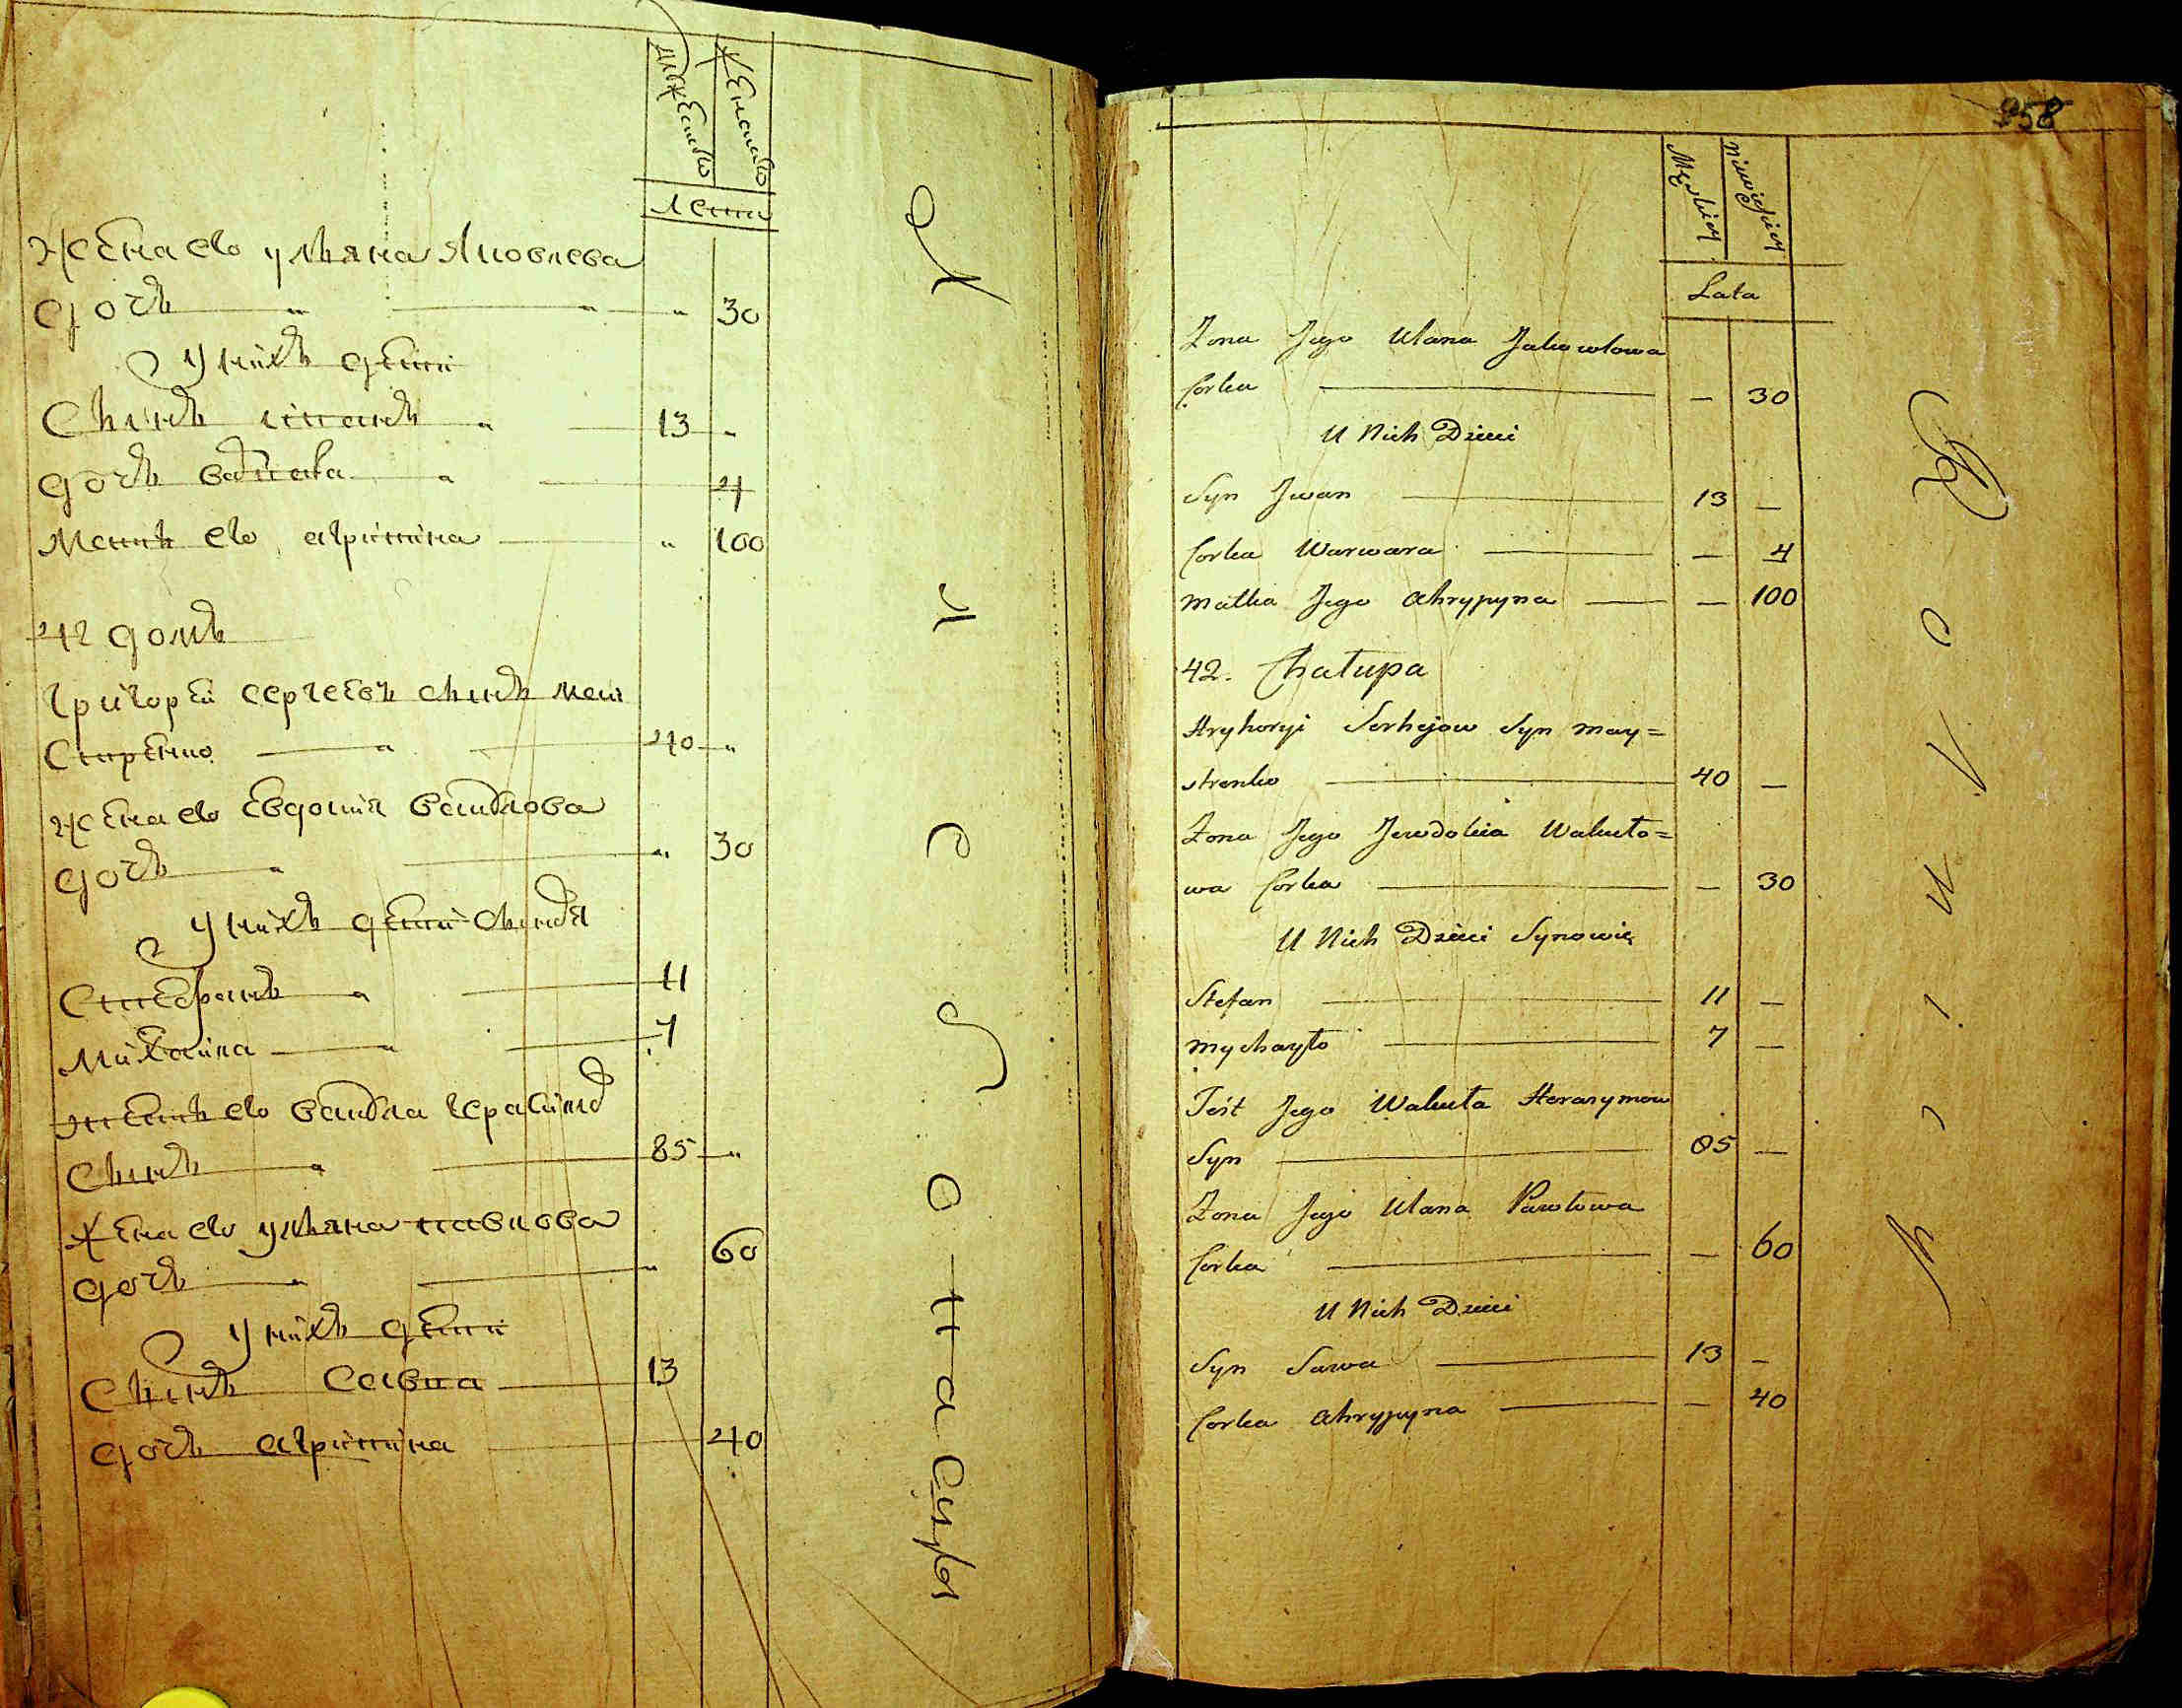 мужеска
женска
лета
жена его ульяна яковлева
дочь 30
у нихъ дети
сынъ иванъ 13
дочь 4
мать его агрипина 100
42 домъ
григорей сергеевъ сынъ маи
стренко 40
жена его евдокия вакулова
дочь 30
у нихъ дети сыновя
стефанъ 11
михайла 7
тесть его вакула герасимо
сынъ 85
жена его ульяна павлова
дочь 60
у нихъ дети
сынъ савка 13
дочь агрипина 40
958
Męskiey
niewieściey
Lata
Żona Jego Ulana Jakowlowa
Corka — 30
U Nich Dzieci
Syn Jwan 13 —
Corka Warwara — 4
Matka Jego Ahrypyna — 100
42. Chałupa
Hryhoryi Serhejow Syn May=
strenko 40 —
Żona Jego Jewdokia Wakuło=
wa Corka — 30
U Nich Dzieci Synowie
Stefan 11 —
Mychayło 7 —
Teśt Jego Wakuła Herasymow
Syn 85 —
Żona Jego Ulana Pawłowa
Corka — 60
U Nich Dzieci
Syn Sawa 13 —
Corka Ahrypyna — 40